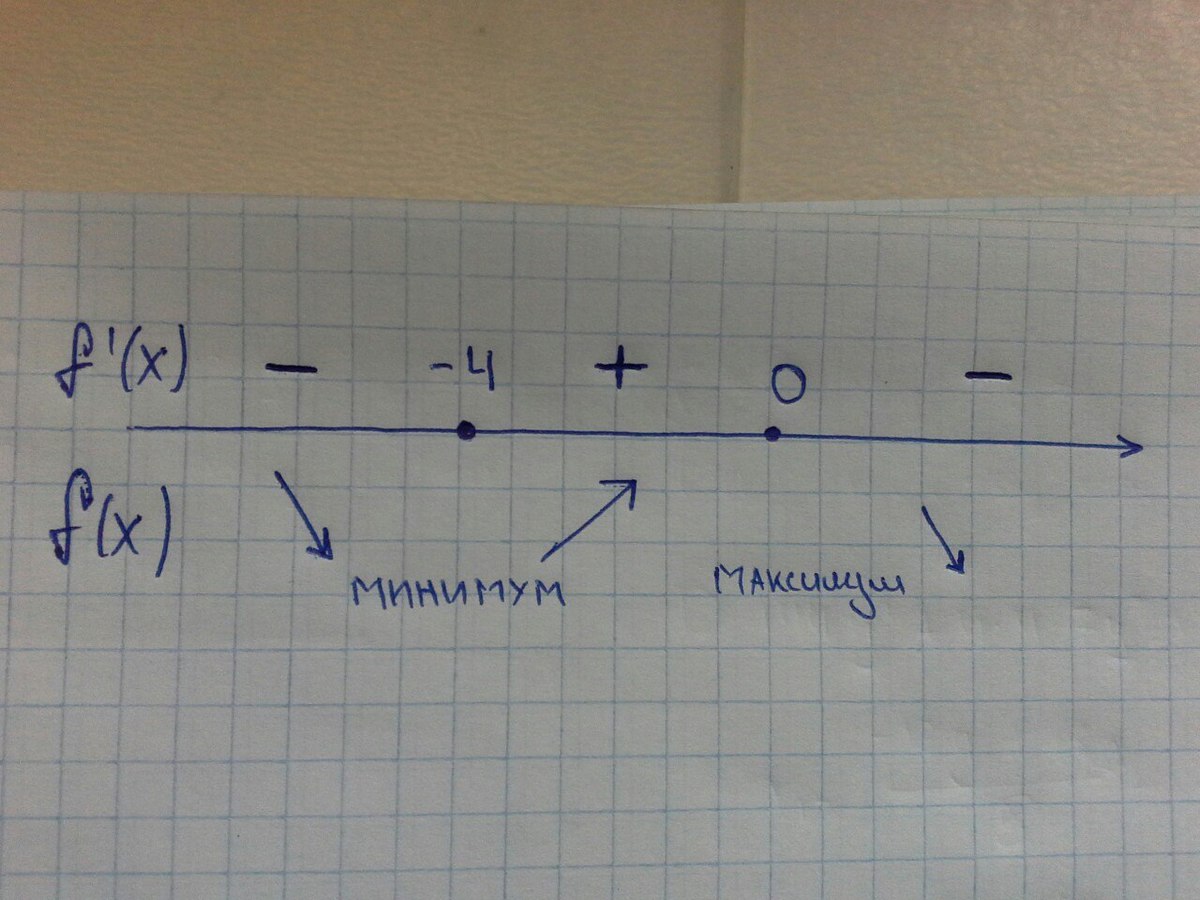 f'(x) — -4 + 0 —
f(x)
минимум максимум